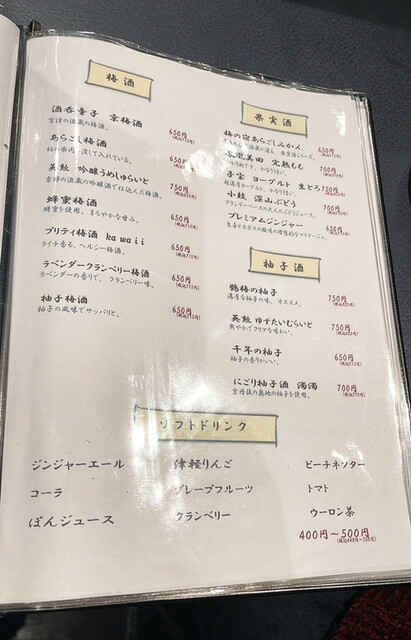 梅酒
酒呑童子 京梅酒
宮津の酒蔵の梅酒。
650円
(税込715円)
あらごし梅酒
梅の果肉を漬して入れている。
650円
(税込715円)
英勲 吟醸うめしゅらいと
京都の酒蔵の吟醸酒で仕込んだ梅酒。
750円
(税込825円)
蜂蜜梅酒
蜂蜜を使用。まろやかな甘み。
650円
(税込715円)
プリティ梅酒 kawaii
ライチ香る、ヘルシー梅酒。
650円
(税込715円)
ラベンダークランベリー梅酒
ラベンダーの香りで、クランベリー味。
650円
(税込715円)
柚子梅酒
柚子の風味でサッパリと。
650円
(税込715円)
果実酒
梅の宿あらごしみかん
650円
(税込715円)
鳳凰美田 完熟もも
700円
子宝 ヨーグルト 生とろ
超濃厚ヨーグルト。かなりうまい。
750円
小鼓 深山ぶどう
700円
プレミアムジンジャー
650円
(税込715円)
柚子酒
鶴梅の柚子
濃厚な柚子の味。オススメ。
750円
(税込825円)
英勲 ゆずたいむらいと
爽やかでクリアな味わい。
750円
(税込825円)
千年の柚子
柚子の香りがいい。
650円
(税込715円)
にごり柚子酒 濁濁
京丹後の奥地の柚子を使用。
700円
(税込770円)
ソフトドリンク
ジンジャーエール 津軽りんご ピーチネクター
コーラ グレープフルーツ トマト
ぽんジュース クランベリー ウーロン茶
400円～500円
(税込440円～550円)